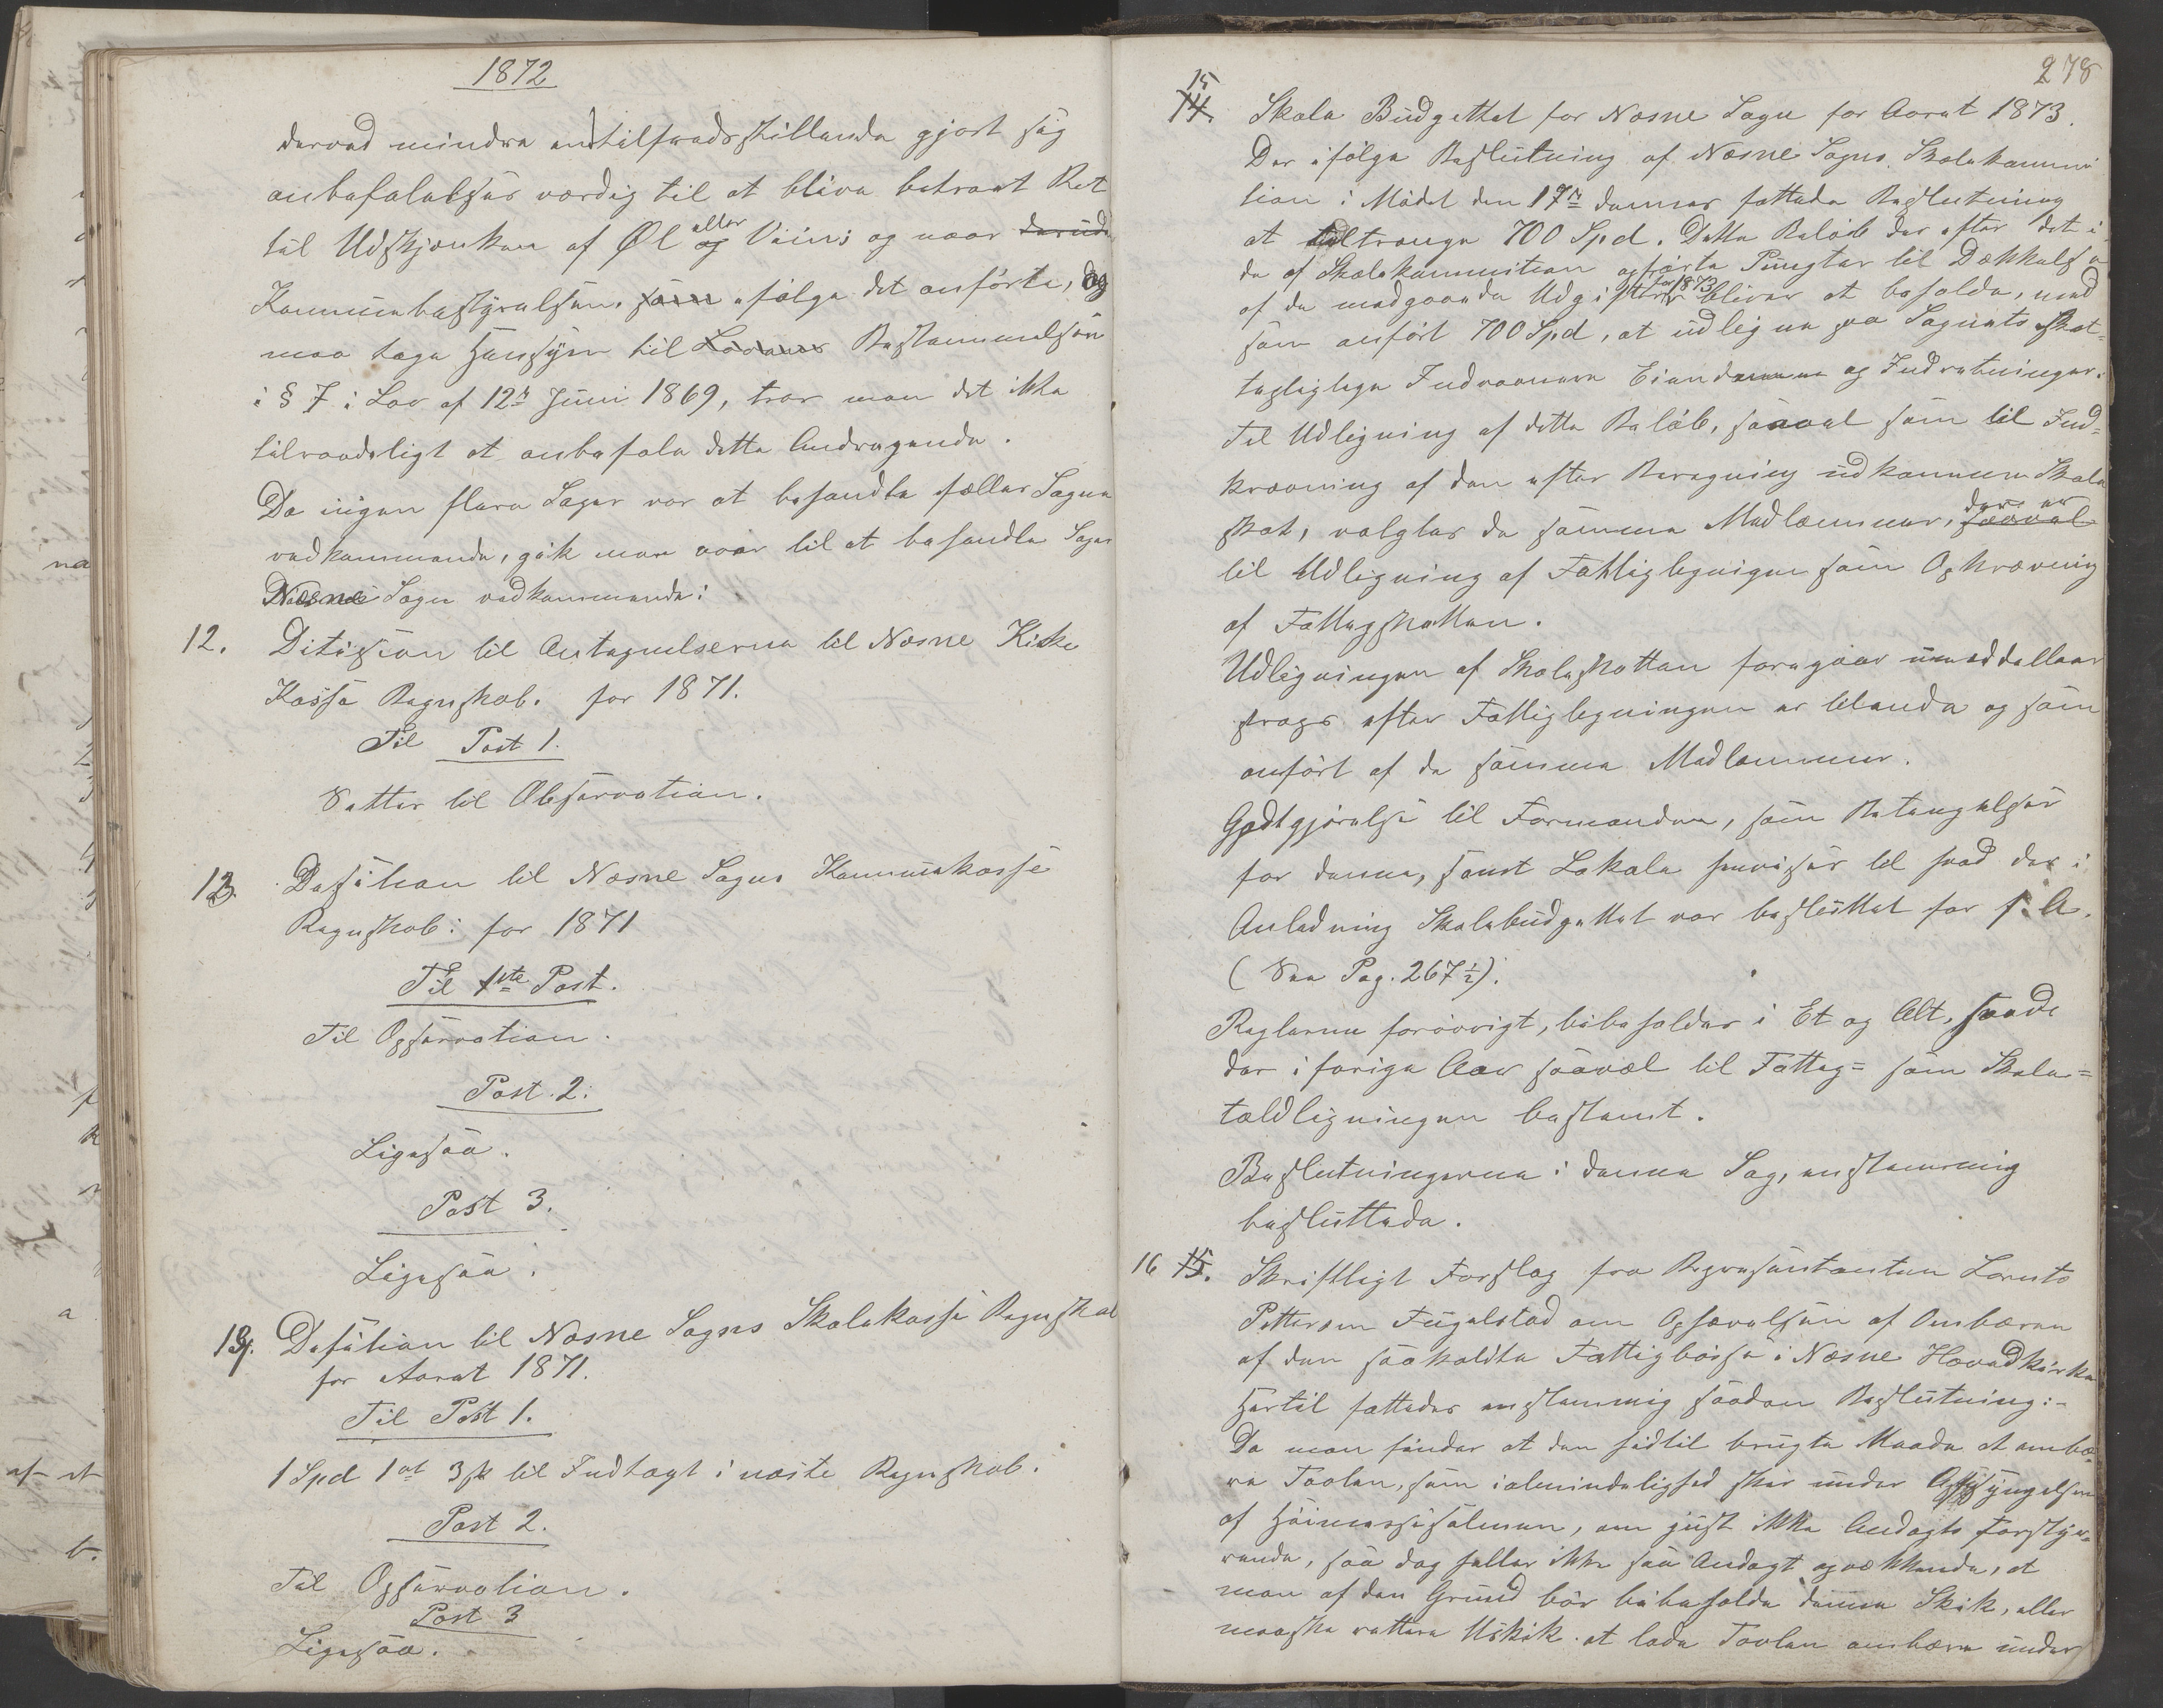 1872
derved mindre end tilfredsstillende gjort sig
anbefalelses værdig til at blive betroet Ret
til Udskjænken af Øl og eller Viin; og naar derude
Kommunbestyrelsen, som ifølge det anførte, og
maa tage Hensyn til Lovens Bestemmelsen
i § 7 i Lov af 12te Juni 1869, tror man det ikke
tilraadeligt at anbefale dette Andragende.
Da ingen flere Sager var at behandle fælles Sogne
vedkommende, gik man over til at behandle Sager
Næsne Sogn vedkommende:
12. Ditision til Antegnelserne til Næsne Kirke
Kasse Regnskab. for 1871.
Til Post 1.
Sættes til Observation.
13. Desition til Næsne Sogns Kommunekasse
Regnskab: for 1871
Til 1ste Post.
Til Opservation.
Post 2:
Ligesaa.
Post 3.
Ligesaa.
14. Desition til Næsne Sogns Skolekasse Regnskab
for Aaret 1871.
Til Post 1.
1 Spd 1 ort 3 sk til Indtægt i næste Regnskab.
Post 2.
Til Opservation.
Post 3
Ligesaa.
278
15
14. Skole Budgettet for Næsne Sogn for Aaret 1873.
Der ifølge Beslutning af Næsne Sogns Skolekommi
tion i Mødet den 17de dennes fattede Beslutning
at tiltrænge 700 Spd. Dette Beløb der efter det i
de af Skolekommition opførte Pungter til Dækkelse
af de medgaaende Udgifter for 1873 bliver at beholde, med
som anført 700 Spd, at udligne paa Sognets Skat-
tepligtige Indvaanere Eiendomme og Indretninger.
Til Udligning af dette Beløb, saavel som til Ind-
krævning af den efter Beregning udkommen Skole
skat, valgtes de samme Medlemmer, saavel der er
til Udligning af Fattiglegnigen som Opkrævning
af Fattigskatten.
Udligningen af Skoleskatten foregaar umiddelbar
strags efter Fattiglegningen er tilende og som
anført af de samme Medlemmer.
Godtgjørelse til Formanden, som Betingelser
for denne, samt Lokale henvises til hvad der i
Anledning Skolebudgettet var besluttet for f. A.
(See Pag. 267½).
Reglerne forøvrigt, bibeholdes i Et og Alt, saade
der i forige Aar saavel til Fattig= som Skole=
tældligningen bestemt.
Beslutningerne i denne Sag, enstemmig
besluttede.
16 15. Skriftligt Forslag fra Repræsentanten Lorents
Pettersen Fugelstad om Ophævelsen af Ombæren
af den saakaldte Fattigbøsse i Næsne Hovedkirke
Hertil fattedes enstemmig saadan Beslutning:-
Da man finder at den hidtil brugte Maade at ombæ-
re Tavlen, som i almindelighed sker under Afsyngelsen
af Høimessesalmen, om just ikke Andagts forstyr-
rende, saa dog heller ikke saa Andagt opvækkende, at
man af den Grund bør bibeholde denne Skik, eller
maaske rettere Uskik at lade Tavlen ombære under